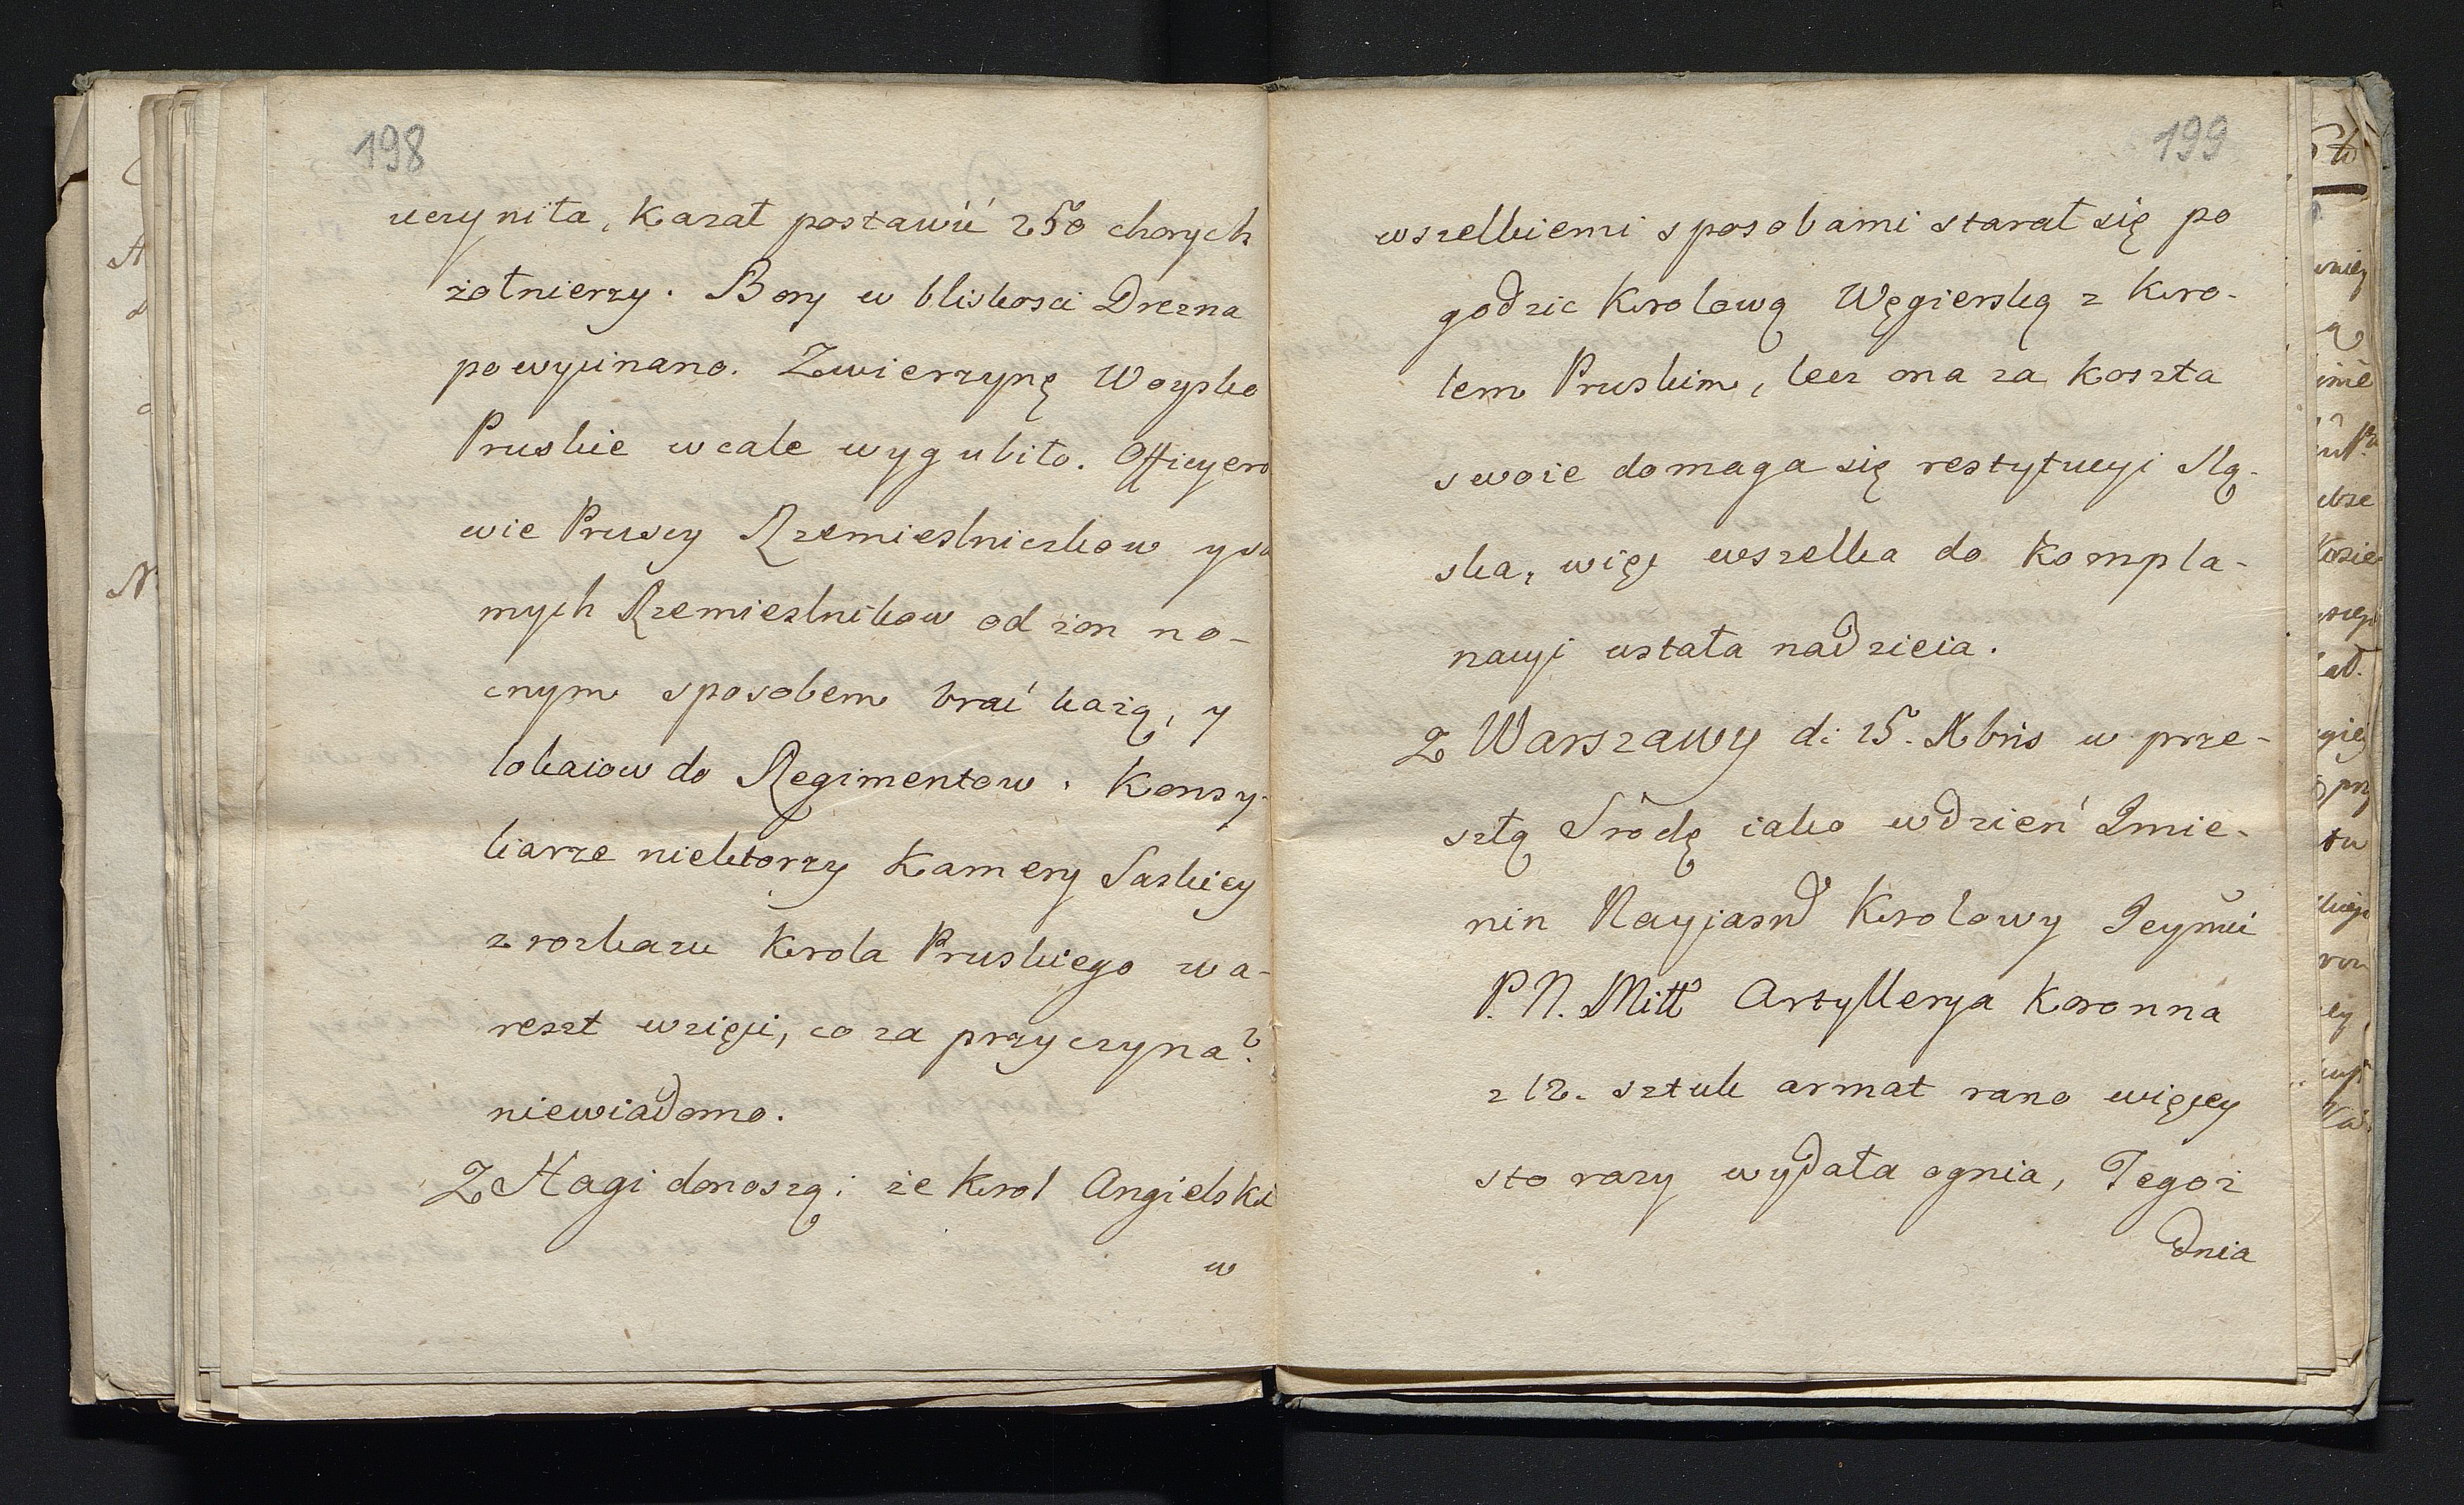 198
uczyniła, Kazał postawić 250 chorych
żołnierzy. Bory w bliskosci Drezna
powycinano. Zwierzynę Woysko
Pruskie wcale wygubiło. Officyero
wie Pruscy Rzemiesniczkow y sa
mych Rzemieslnikow od żon no-
cnym sposobem brać każą, y
lokaiow do Regimentow. Konsy-
liarze niektorzy Kamery Saskiey
z roskazu Krola Pruskiego w a-
reszt wzięci, co za przyczyna?
niewiadomo.
Z Hagi donoszą; że Krol Angielski
w
199
wszelkiemi sposobami starał się po
godzic Krolową Węgierską z Kro-
lem Pruskim, lecz ona za koszta
swoie domaga się restytucyi Slą-
ska, więc wszelka do kompla-
nacyi ustała nadzieia.
Z Warszawy d: 15. Xbris w prze-
szłą Srodę iako w dzień Imie-
nin Nayjasn Krolowy Jeymci
P. N. Miłł Artyllerya Koronna
z 12. sztuk armat rano więcey
sto razy wydała ognia, Tegoż
dnia